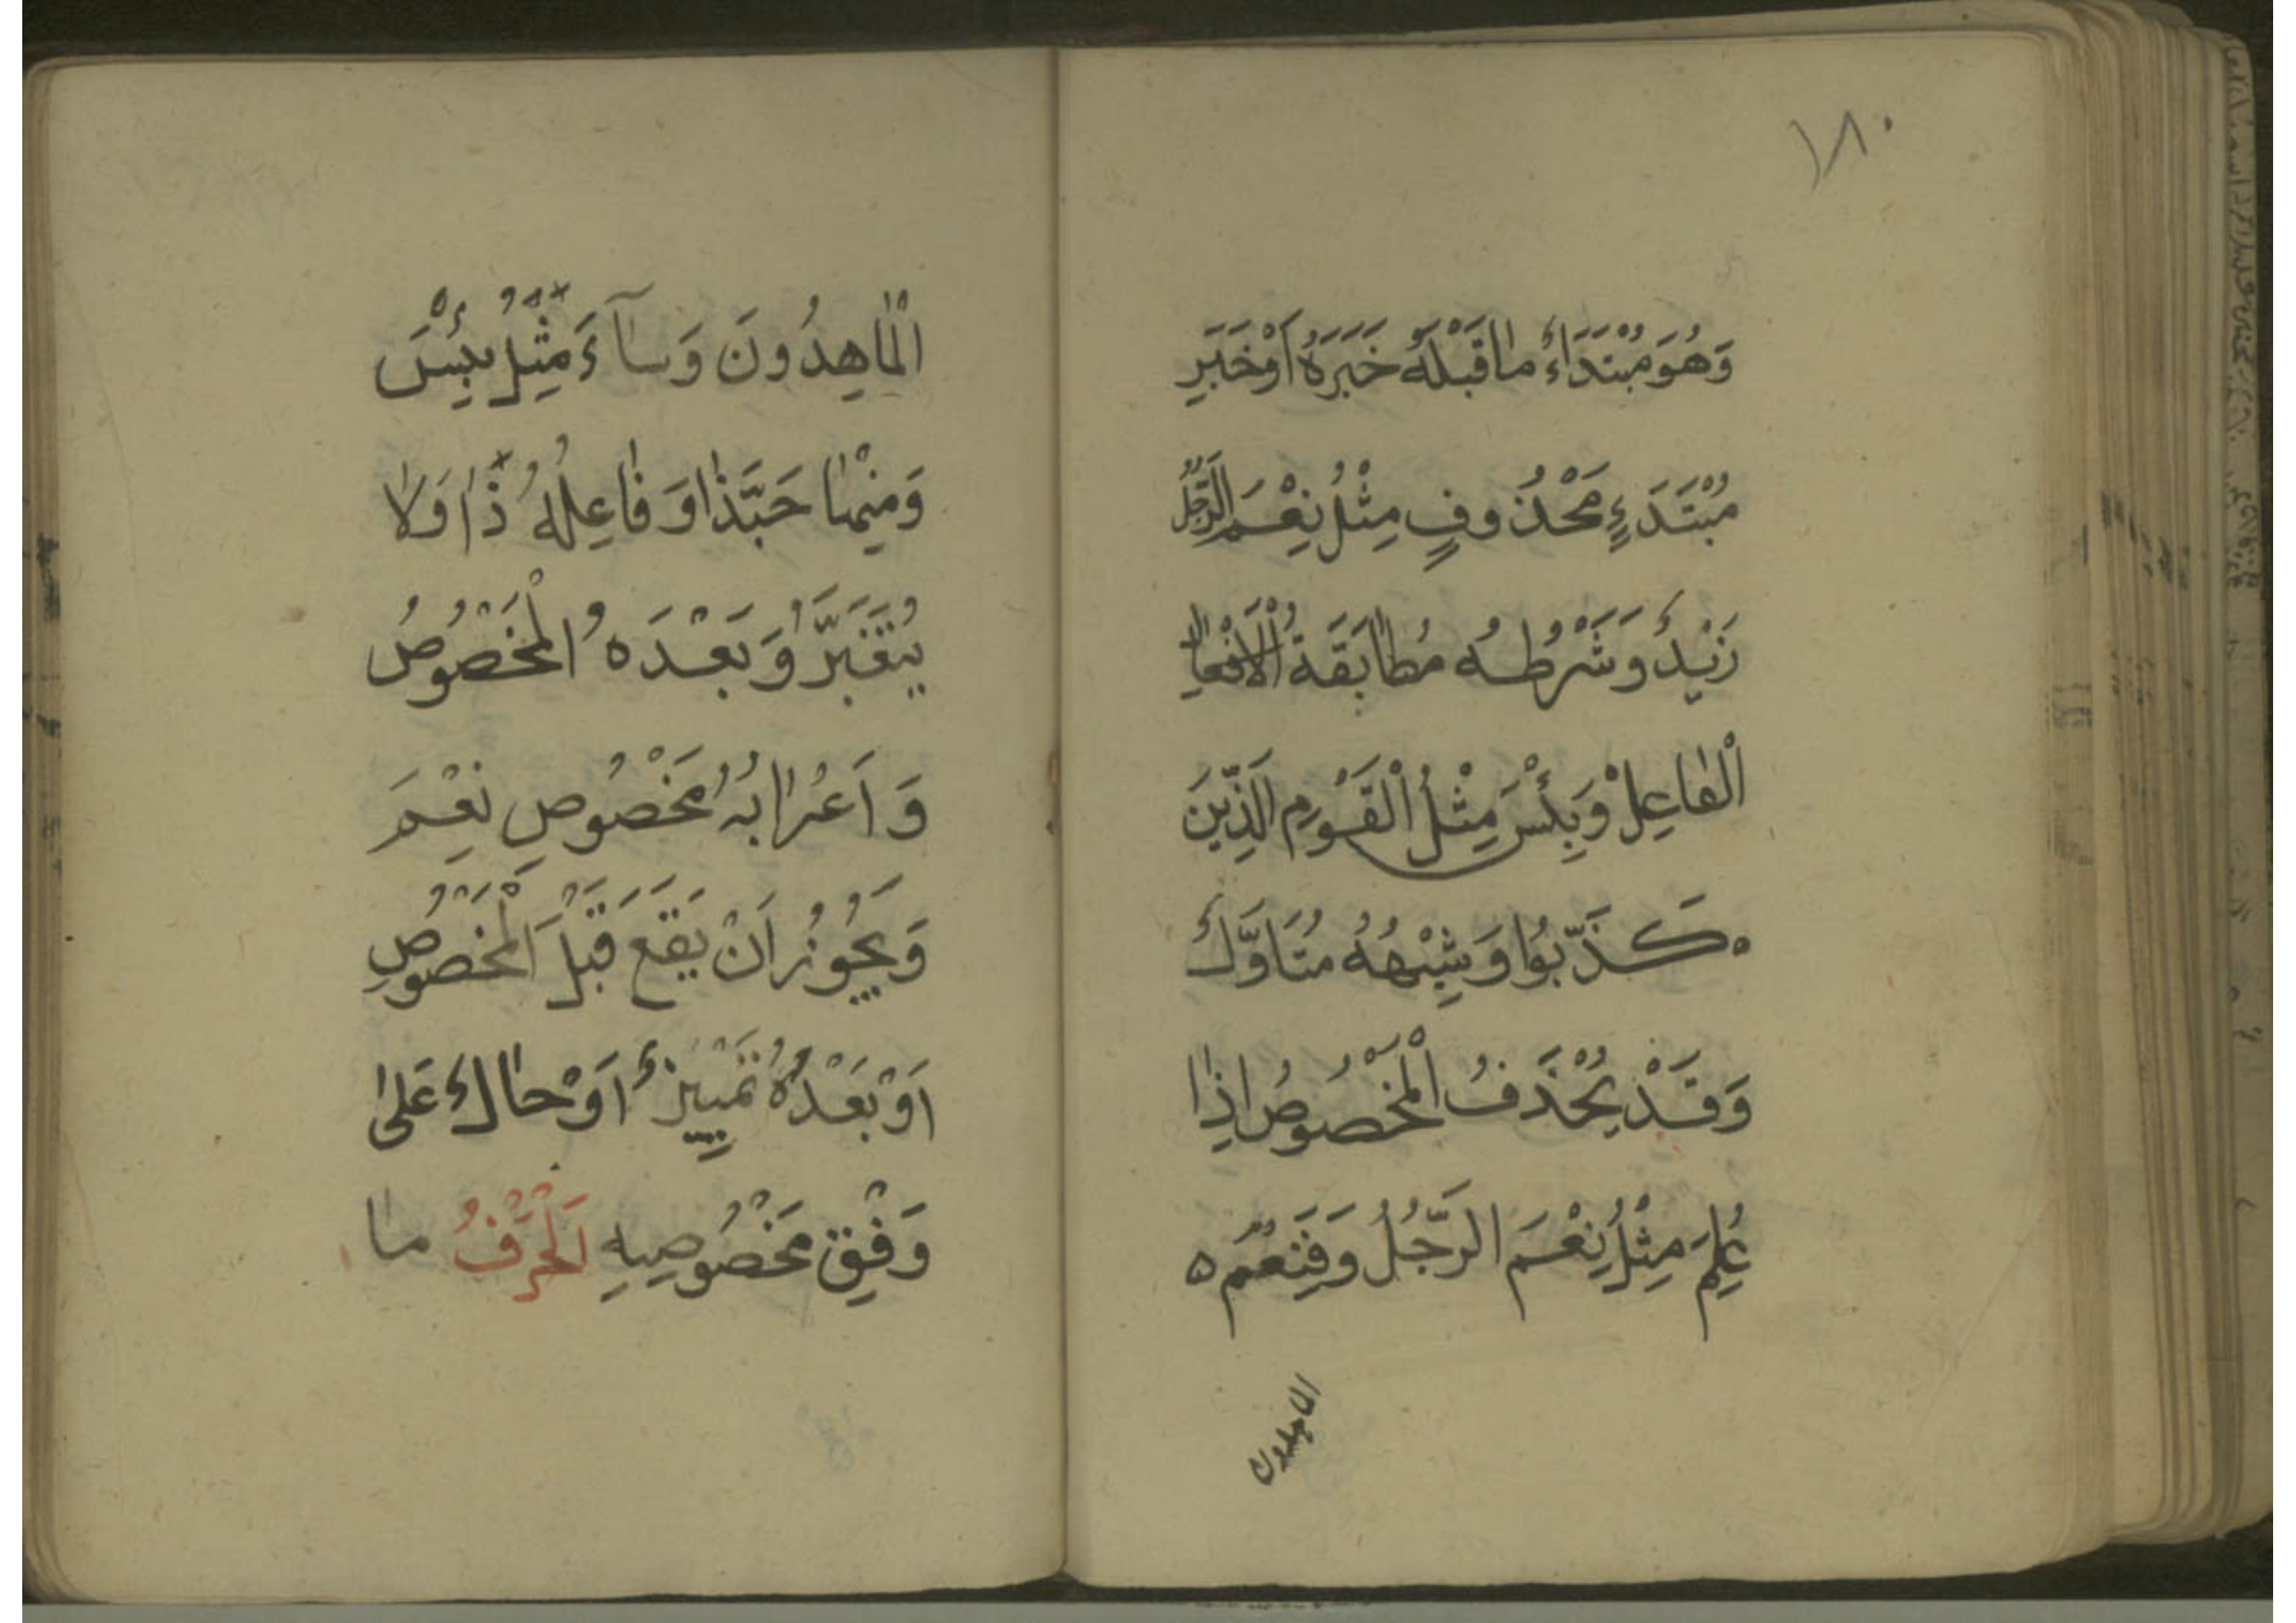 ١٨٠
وَهُوَ مُبْتَدَاءٌ مٰا قَبْلَهُ خَبَرَهُ اَوْ خَبَرِ
مُبْتَدَءٍ مَحْذُوفٍ مِثْلُ نِعْمَ الرَّجُلُ
زَيْدٌ وَشَرْطُهُ مُطٰابَقَةُ الْاَفْعٰالِ
الْفٰاعِلْ وَبِئْسَ مِثْلُ الْقَوْمِ الَّذِينَ
كَذَّبُوا وَشِبْهُهُ مُتَاَوَّلٌ
وَقَدْ يُحْذَفُ الْمَخْصُوصُ اِذٰا
عُلِمَ مِثْلُ نِعْمَ الرَّجُلُ وَفَنِعْمَ ه
الْمٰاهِدُونَ وَسٰآءَ مِثْلُ بِئْسَ
وَمِنْهٰا حَبَّذٰا وَفٰاعِلُهُ ذٰا وَلاٰ
يُتَغَيَّرُ وَبَعْدَهُ الْمَخْصُوصُ
وَاَعْرٰابُهُ مَخْصُوصِ نِعْمَ
وَيَجُوزُ اَنْ يَقَعَ قَبْلَ الْمَخْصُوصِ
اَوْ بَعْدَهُ تَمْيِيزٌ اَوْ حٰالٌ عَلىٰ
وَفْقِ مَخْصُوصِهِ اَلْحَرْفُ مٰا